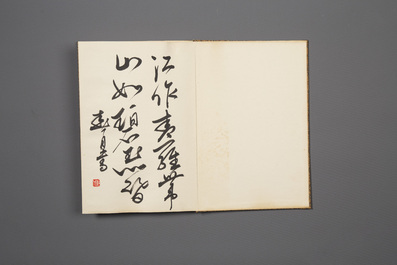 江作青羅帶
山如碧玉簪